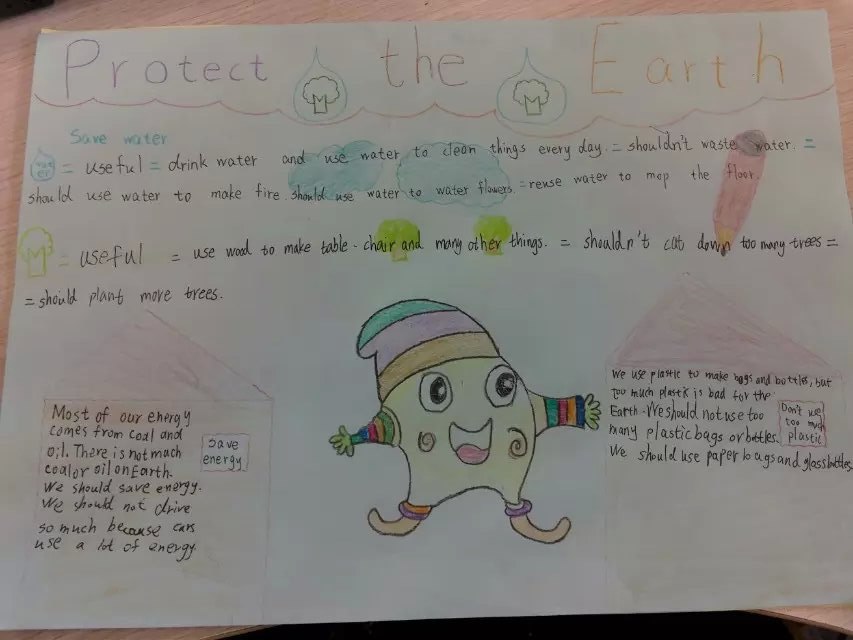 Protect the Earth
Save water
water = useful = drink water and use water to clean things every day. = shouldn't waste water. =
should use water to make fire. should use water to water flowers. = reuse water to mop the floor.
= useful = use wood to make table. chair and many other things. = shouldn't cut down too many trees =
= should plant more trees.
Most of our energy
comes from coal and
oil. There is not much
coal or oil on Earth.
We should save energy.
We should not drive
so much because cars
use a lot of energy.
save
energy
We use plastic to make bags and bottles, but
too much plastic is bad for the
Earth. We should not use too
many plastic bags or bottles.
We should use paper bags and glass bottles.
Don't use
too much
plastic